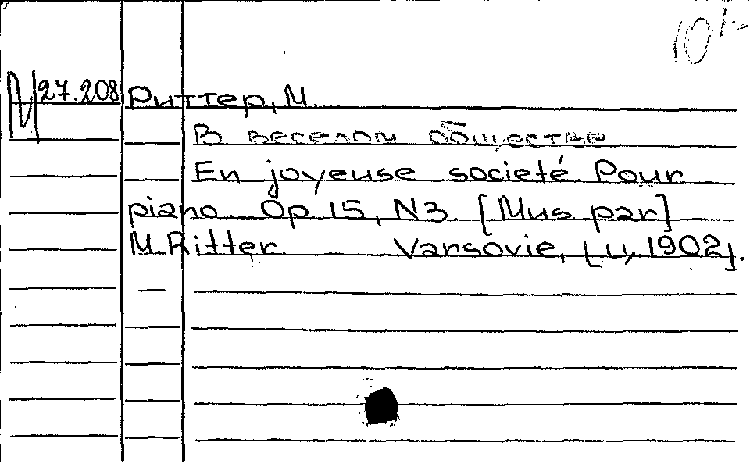 10/-
М 27.208 Риттер, М.
В веселом обществе
En joyeuse societé Pour
piano Op. 15, N3. [Mus par]
M. Ritter Varsovie, [ц, 1902].